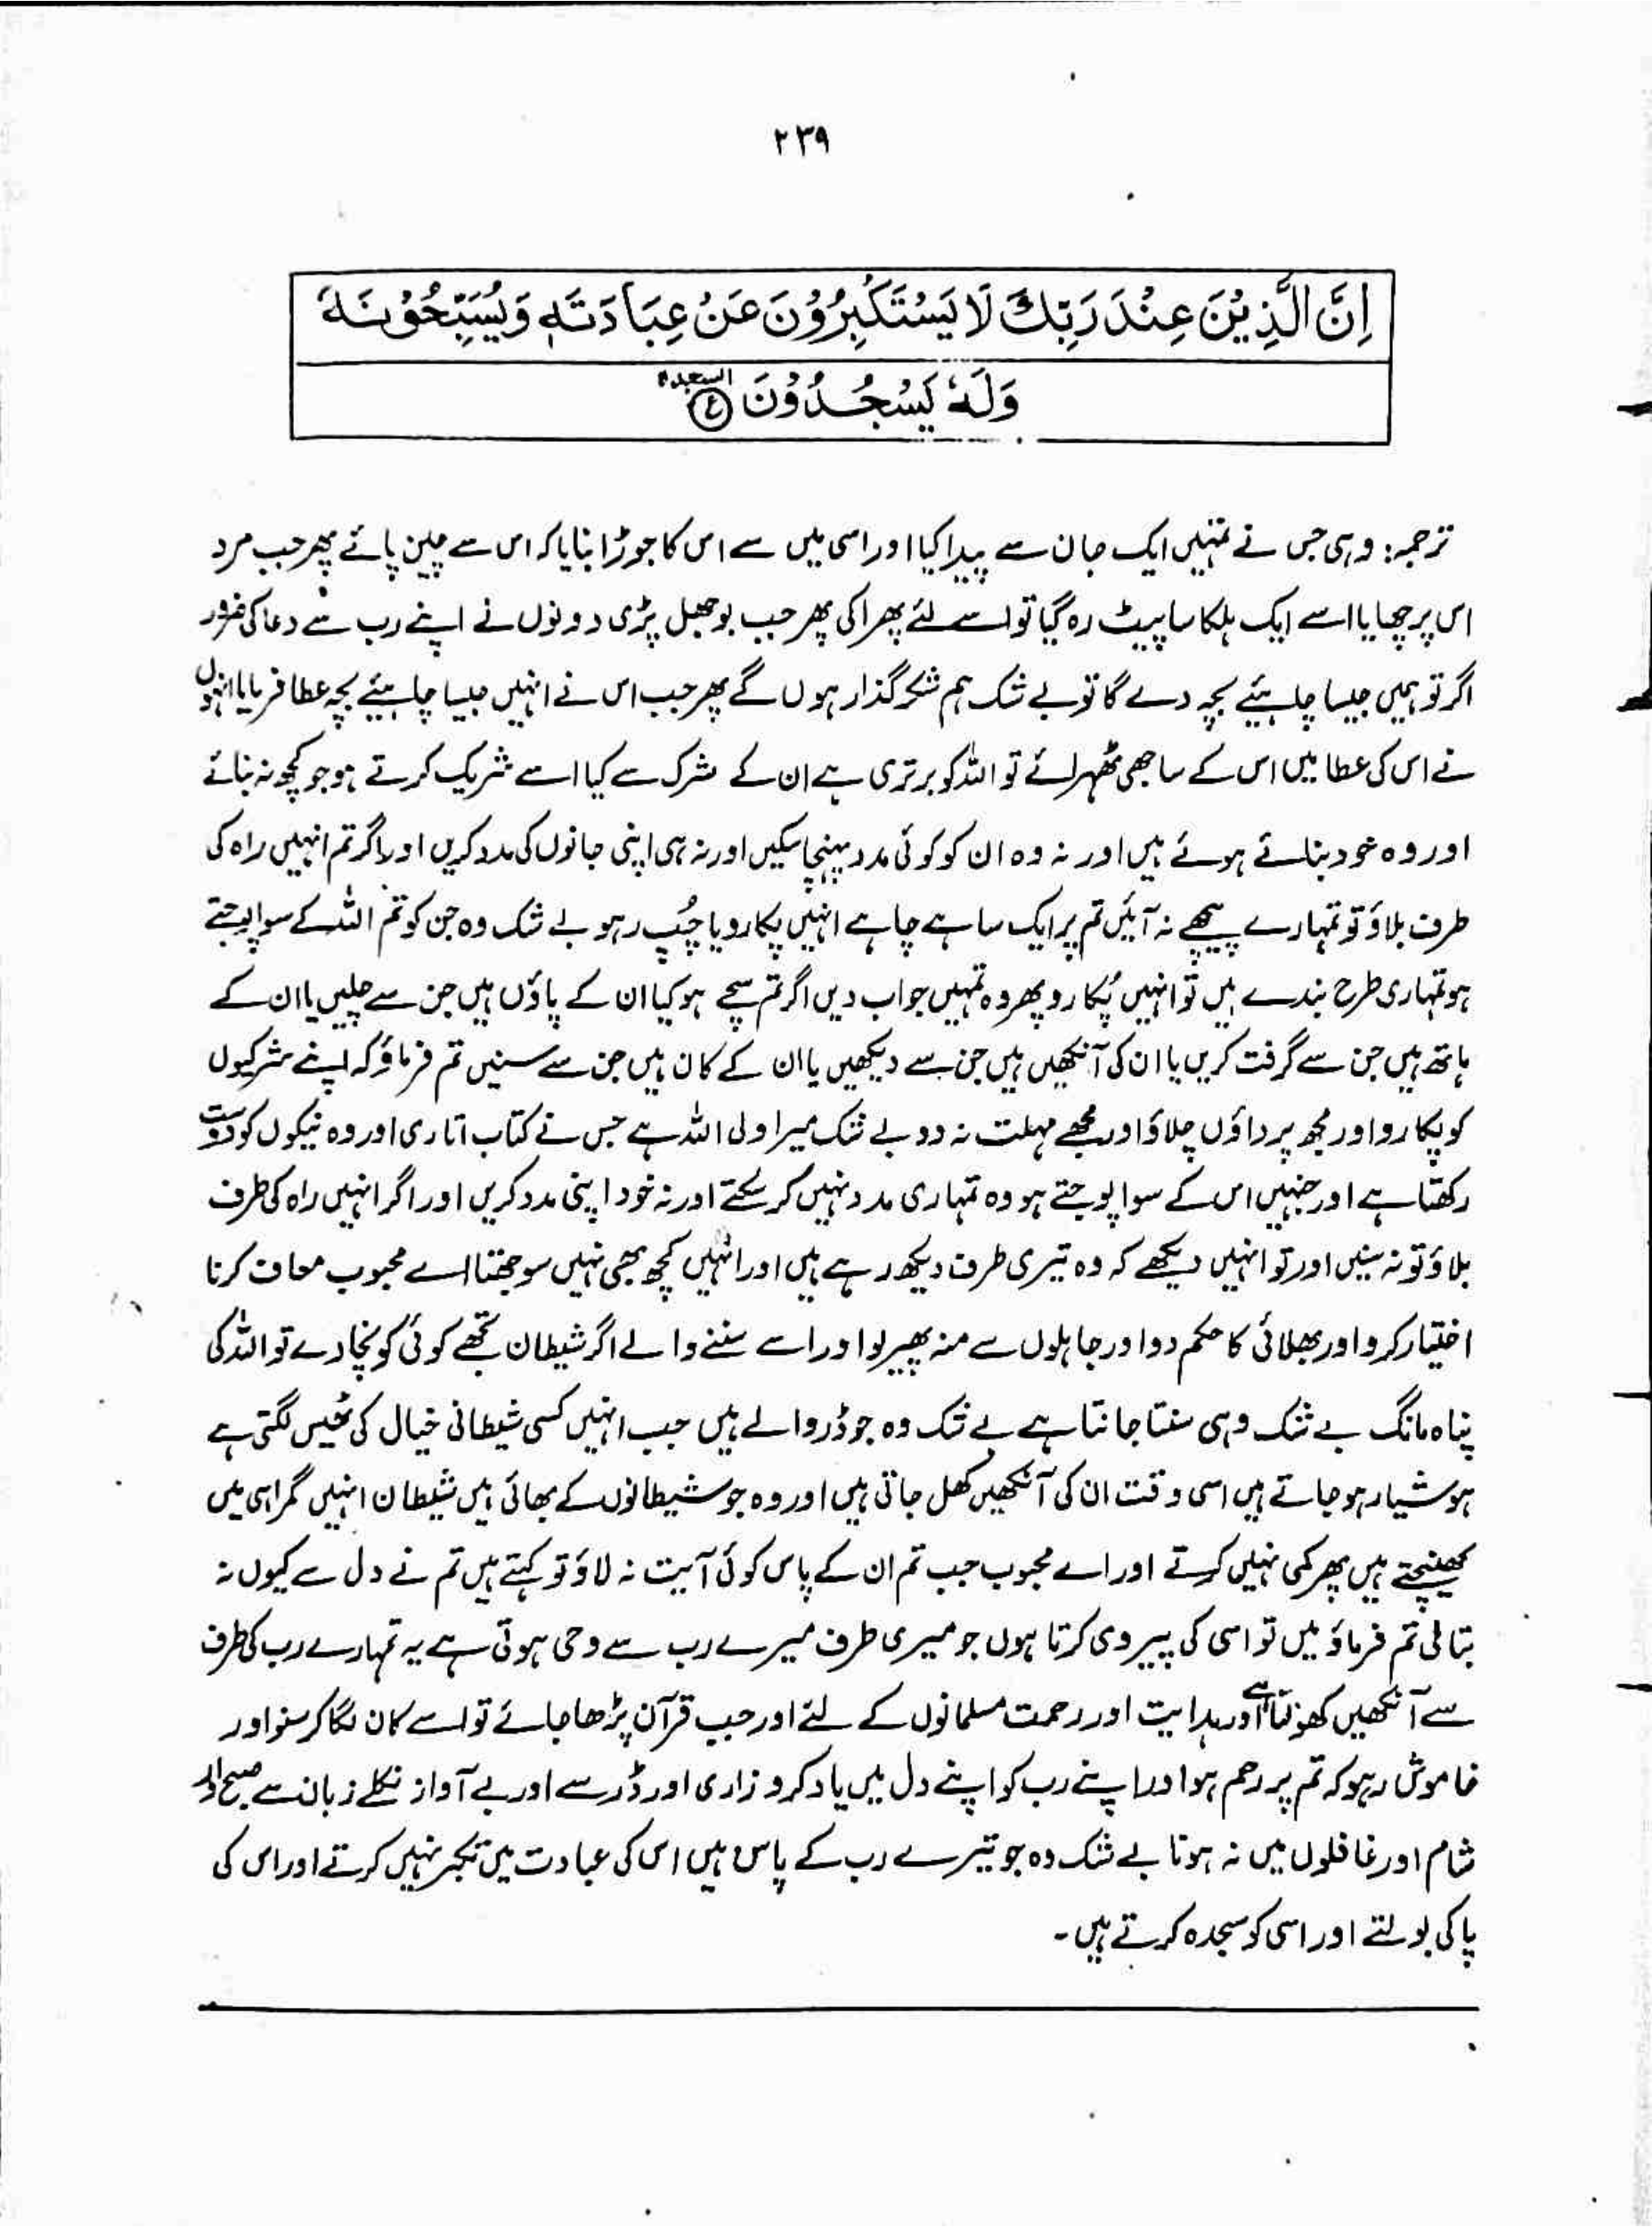 ۲۳۹
اِنَّ الَّذِيْنَ عِنْدَ رَبِّكَ لَا يَسْتَكْبِرُوْنَ عَنْ عِبَادَتَهٖ وَيُسَبِّحُوْنَهٗ
وَلَهٗ يَسْجُدُوْنَ السجدة ع
ترجمہ: وہی جس نے تمہیں ایک جان سے پیدا کیا اور اسی میں سے اس کا جوڑا بنایا کہ اس سے چین پائے پھر جب مرد
اس پر چھایا اسے ایک ہلکا سا پیٹ رہ گیا تو اسے لئے پھرا کی پھر جب بوجھل پڑی دونوں نے اپنے رب سے دعا کی ضرور
اگر تو ہمیں جیسا چاہیئے بچہ دے گا تو بے شک ہم شکر گذار ہوں گے پھر جب اس نے انہیں جیسا چاہیئے بچہ عطا فرمایا انہوں
نے اس کی عطا میں اس کے ساجھی ٹھہرائے تو اللہ کو برتری ہے ان کے شرک سے کیا اسے شریک کرتے ہو جو کچھ نہ بنائے
اور وہ خود بنائے ہوئے ہیں اور نہ وہ ان کو کوئی مدد پہنچا سکیں اور نہ ہی اپنی جانوں کی مدد کریں اور اگر تم انہیں راہ کی
طرف بلاؤ تو تمہارے پیچھے نہ آئیں تم پر ایک سا ہے چاہے انہیں پکارو یا چُپ رہو بے شک وہ جن کو تم اللہ کے سوا پوجتے
ہو تمہاری طرح بندے ہیں تو انہیں پُکارو پھر وہ تمہیں جواب دیں اگر تم سچے ہو کیا ان کے پاؤں ہیں جن سے چلیں یا ان کے
ہاتھ ہیں جن سے گرفت کریں یا ان کی آنکھیں ہیں جن سے دیکھیں یا ان کے کان ہیں جن سے سنیں تم فرماؤ کہ اپنے شریکوں
کو پکارو اور مجھ پر داؤں چلاؤ اور مجھے مہلت نہ دو بے شک میرا ولی اللہ ہے جس نے کتاب اتاری اور وہ نیکوں کو دوست
رکھتا ہے اور جنہیں اس کے سوا پوجتے ہو وہ تمہاری مدد نہیں کر سکتے اور نہ خود اپنی مدد کریں اور اگر انہیں راہ کی طرف
بلاؤ تو نہ سنیں اور تو انہیں دیکھے کہ وہ تیری طرف دیکھ رہے ہیں اور انہیں کچھ بھی نہیں سوجھتا اے محبوب معاف کرنا
اختیار کرو اور بھلائی کا حکم دو اور جاہلوں سے منہ پھیر لو اور اے سننے والے اگر شیطان تجھے کوئی کونچا دے تو اللہ کی
پناہ مانگ بے شک وہی سنتا جانتا ہے بے شک وہ جو ڈر والے ہیں جب انہیں کسی شیطانی خیال کی ٹھیس لگتی ہے
ہوشیار ہو جاتے ہیں اسی وقت ان کی آنکھیں کھل جاتی ہیں اور وہ جو شیطانوں کے بھائی ہیں شیطان انہیں گمراہی میں
کھینچتے ہیں پھر کمی نہیں کرتے اور اے محبوب جب تم ان کے پاس کوئی آیت نہ لاؤ تو کہتے ہیں تم نے دل سے کیوں نہ
بتالی تم فرماؤ میں تو اسی کی پیروی کرتا ہوں جو میری طرف میرے رب سے وحی ہوتی ہے یہ تمہارے رب کی طرف
سے آنکھیں کھولتا ہے اور ہدایت اور رحمت مسلمانوں کے لئے اور جب قرآن پڑھا جائے تو اسے کان لگا کر سنو اور
خاموش رہو کہ تم پر رحم ہو اور اپنے رب کو اپنے دل میں یاد کرو زاری اور ڈر سے اور بے آواز نکلے زبان سے صبح اور
شام اور غافلوں میں نہ ہونا بے شک وہ جو تیرے رب کے پاس ہیں اس کی عبادت میں تکبر نہیں کرتے اور اس کی
پاکی بولتے اور اسی کو سجدہ کرتے ہیں۔